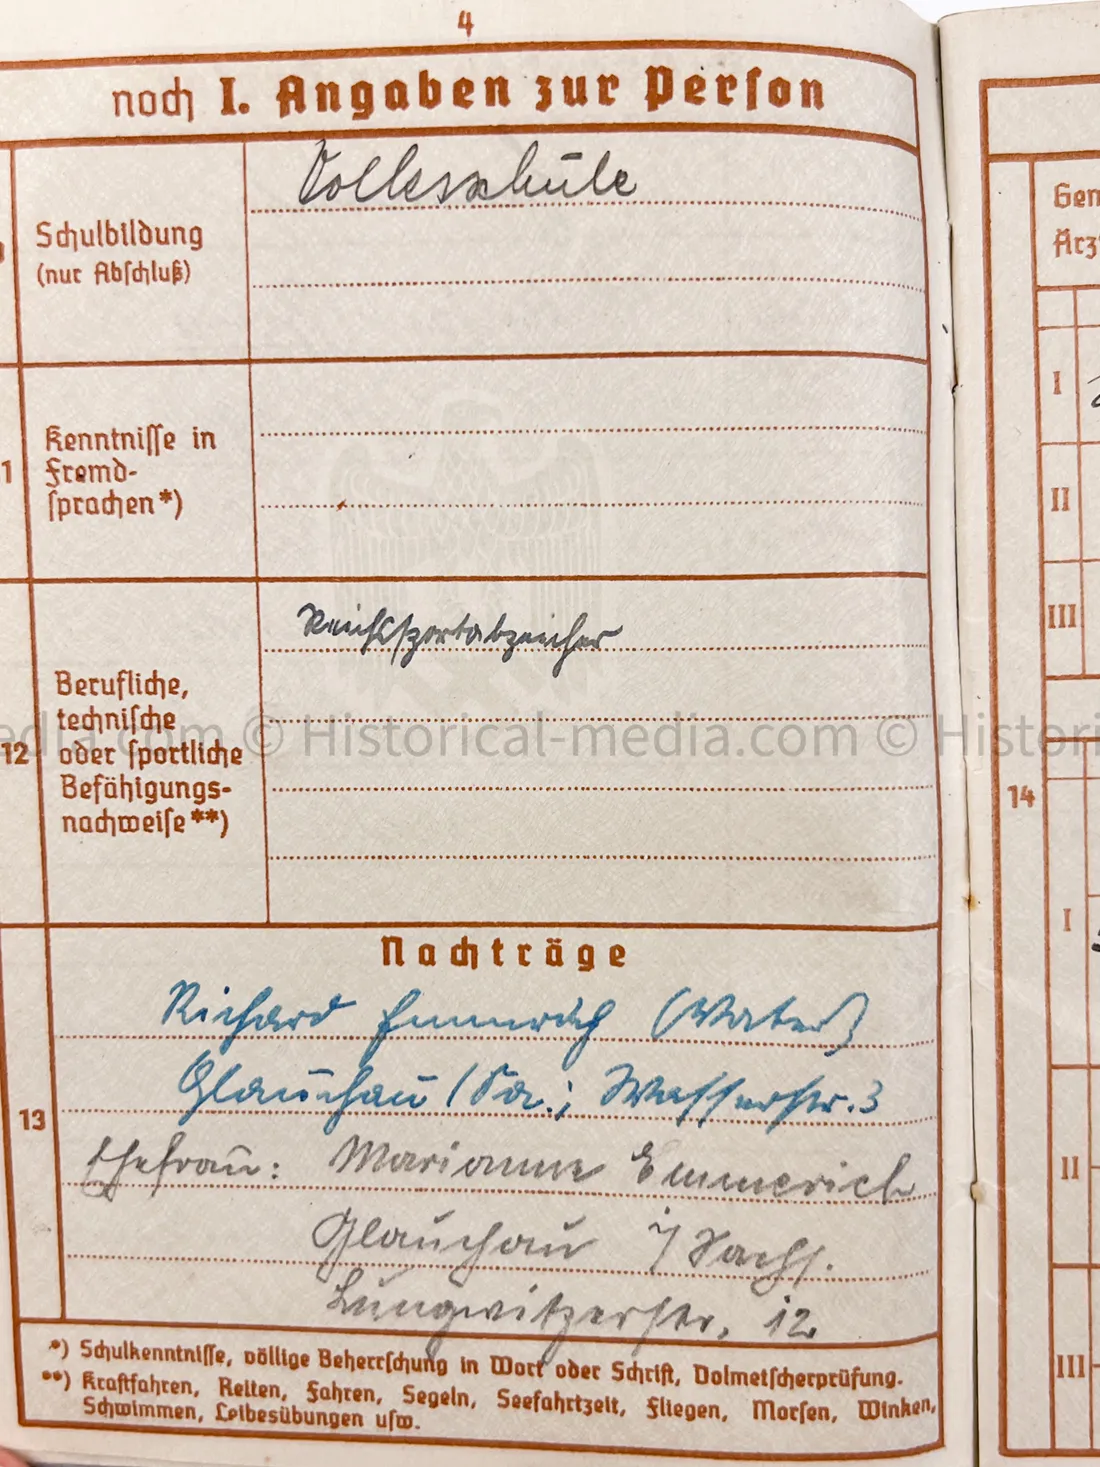 4
noch I. Angaben zur Person
Volksschule
Schulbildung
(nur Abschluß)
1
Kenntnisse in
Fremd-
sprachen *)
Reichssportabzeichen
12
Berufliche,
technische
oder sportliche
Befähigungs-
nachweise **)
Nachträge
13
Richard Emmerich (Vater)
Glauchau (Sa.; Wasserstr. 3
Ehefrau: Marianne Emmerich
Glauchau i/Sachs.
Lungwitzerstr. 12
*) Schulkenntnisse, völlige Beherrschung in Wort oder Schrift, Dolmetscherprüfung.
**) Kraftfahren, Reiten, Fahren, Segeln, Seefahrtzeit, Fliegen, Morsen, Winken,
Schwimmen, Leibesübungen usw.
Gem
Ärz
I
II
III
14
I
II
III
edia.com © Historical-media.com © Histori